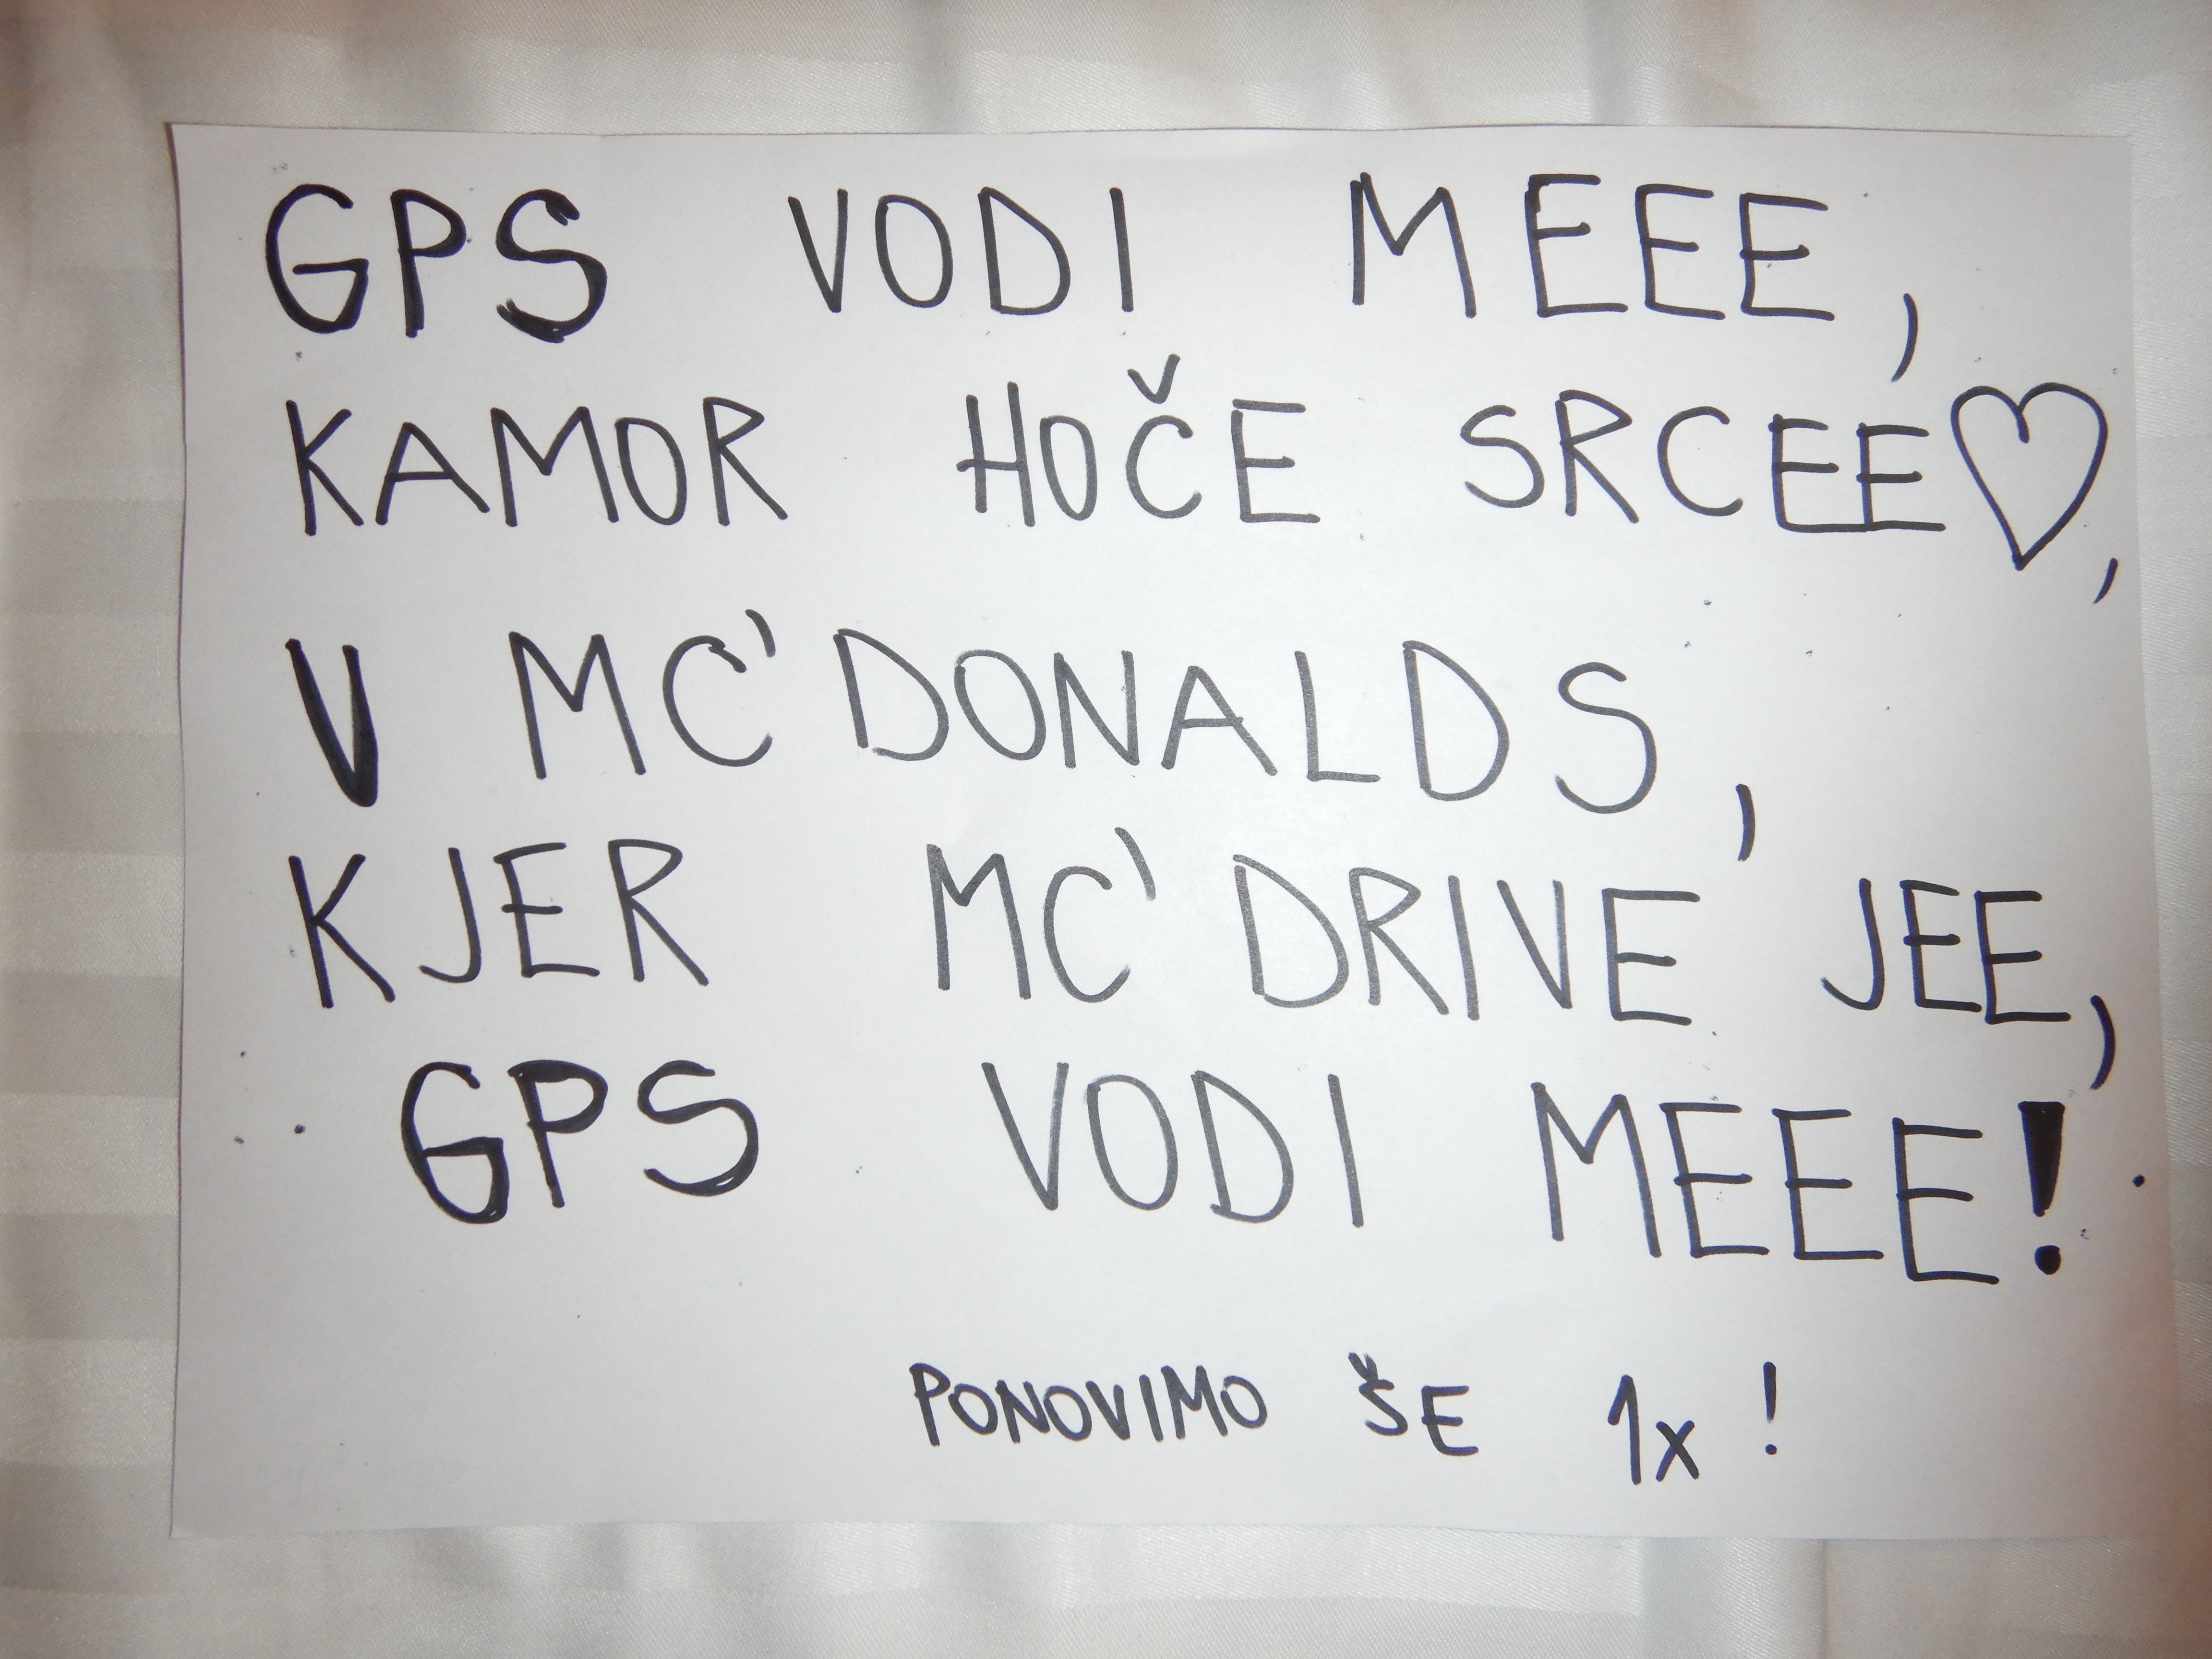 GPS VODI MEEE,
KAMOR HOČE SRCEE♡,
V MC'DONALDS,
KJER MC'DRIVE JEE,
GPS VODI MEEE!
PONOVIMO ŠE 1x!